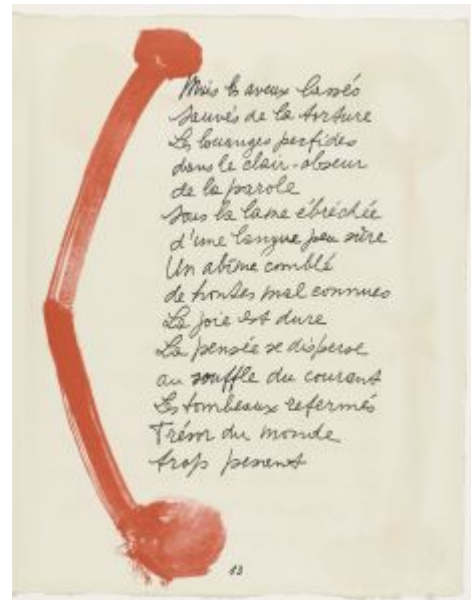 Mais les aveux lassés
sauvés de la torture
Les louanges perfides
dans le clair-obscur
de la parole
sous la lame ébréchée
d'une langue peu sûre
Un abîme comblé
de hontes mal connues
La joie est dure
La pensée se disperse
au souffle du courant
Les tombeaux refermés
Trésor du monde
trop pesant
13